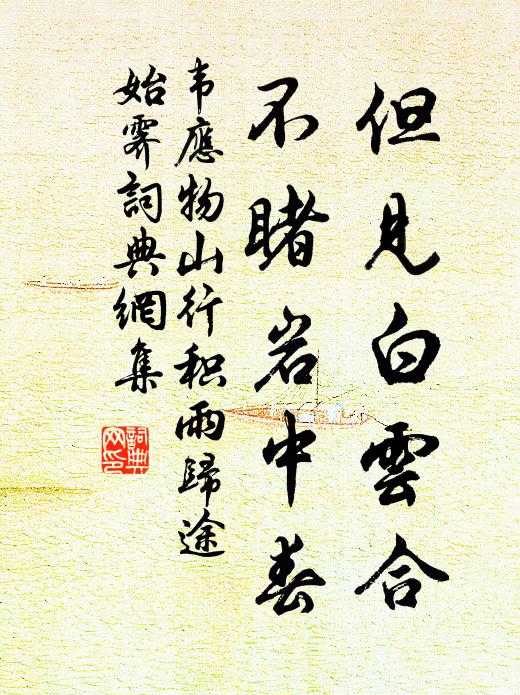 但見白雲合
不睹岩中春
韦應物山行积雨歸途
始霽詞典網集
詞典
网印